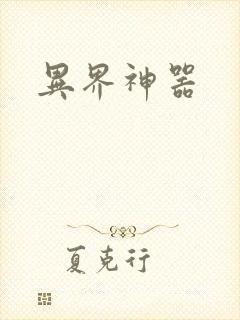 異界神器
夏克行